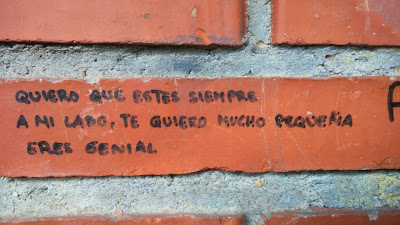 QUIERO QUE ESTES SIEMPRE
A MI LADO, TE QUIERO MUCHO PEQUEÑA
ERES GENIAL